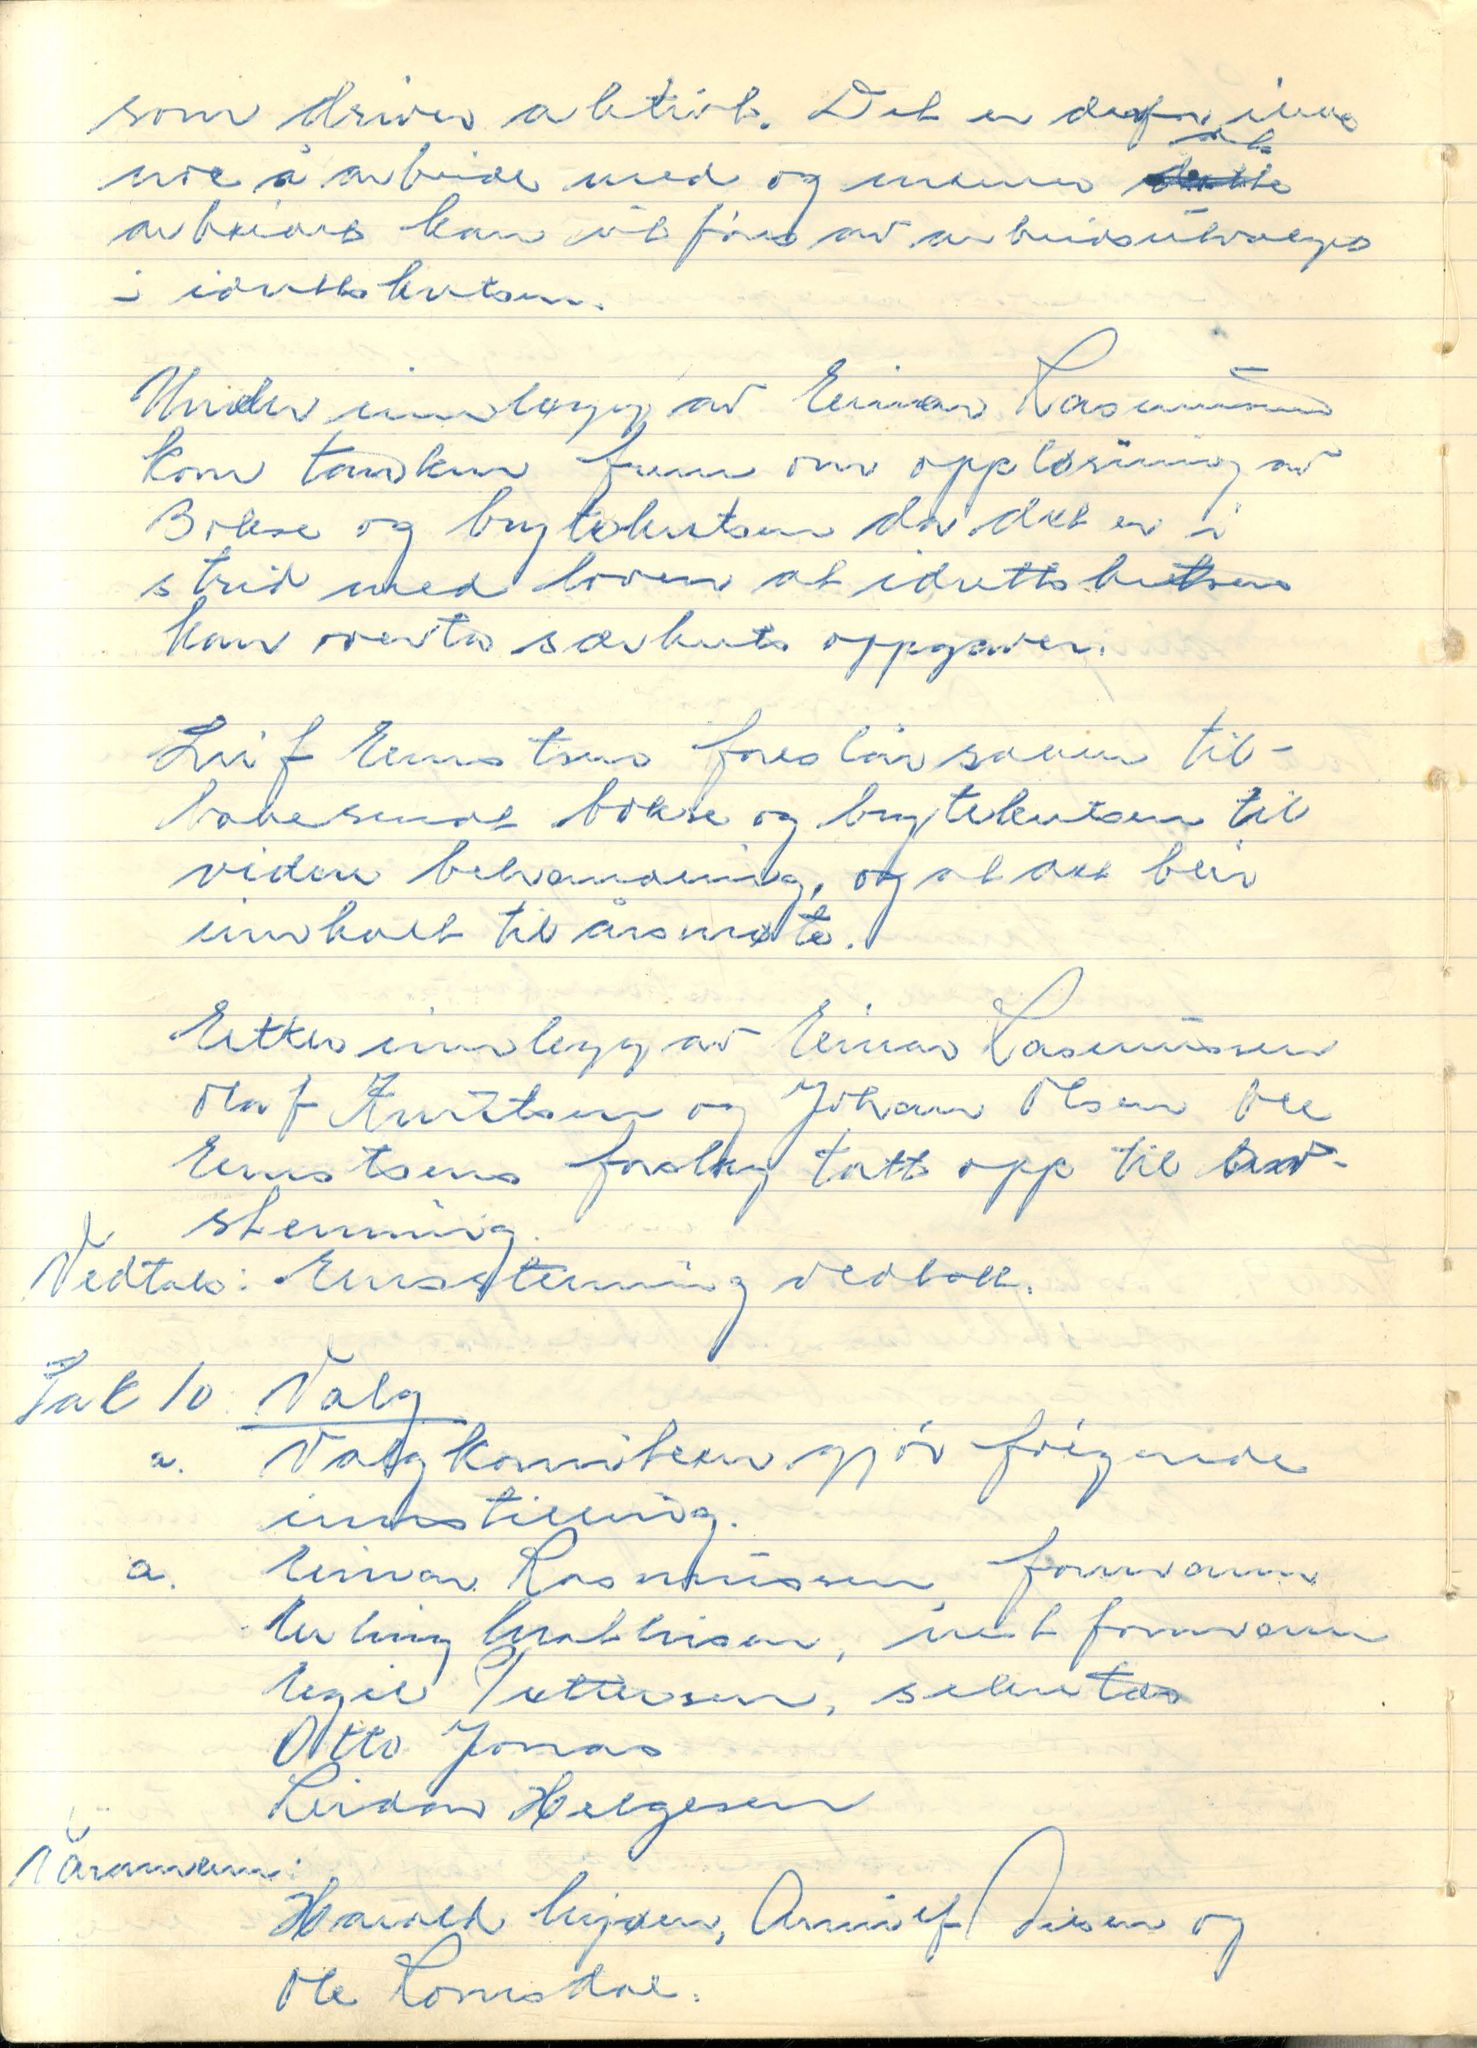 som driver aktivt. Det er derfor intet
noe å arbeide med og mener det
arbeidet kan utføres av arbeidsutvalget
i idrettskretsen.
Under innlegg av Einar Rasmussen
kom tanken frem om oppløsning av
Bokse og brytekretsen da det er i
strid med loven at idrettskretsen
kan overta særkrets oppgaver.
Leif Ernstsen foreslår saken til-
bakesendt bokse og brytekretsen til
videre behandling, og at det blir
innkalt til årsmøte.
Etter innlegg av Einar Rasmussen
Olaf Knutsen og Johan Olsen ble
Ernstsens forslag tatt opp til av-
stemning.
Vedtak: Enstemmig vedtatt.
Sak 10. Valg
a. Valgkomiteen gjør følgende
innstilling.
a. Einar Rasmussen, formann
Erling Mathisen, nestformann
Egil Pettersen, sekretær
Otto Jonas
Reidar Helgesen
Varamenn:
Harald, Arnulf Olsen og
Ole Romsdal.